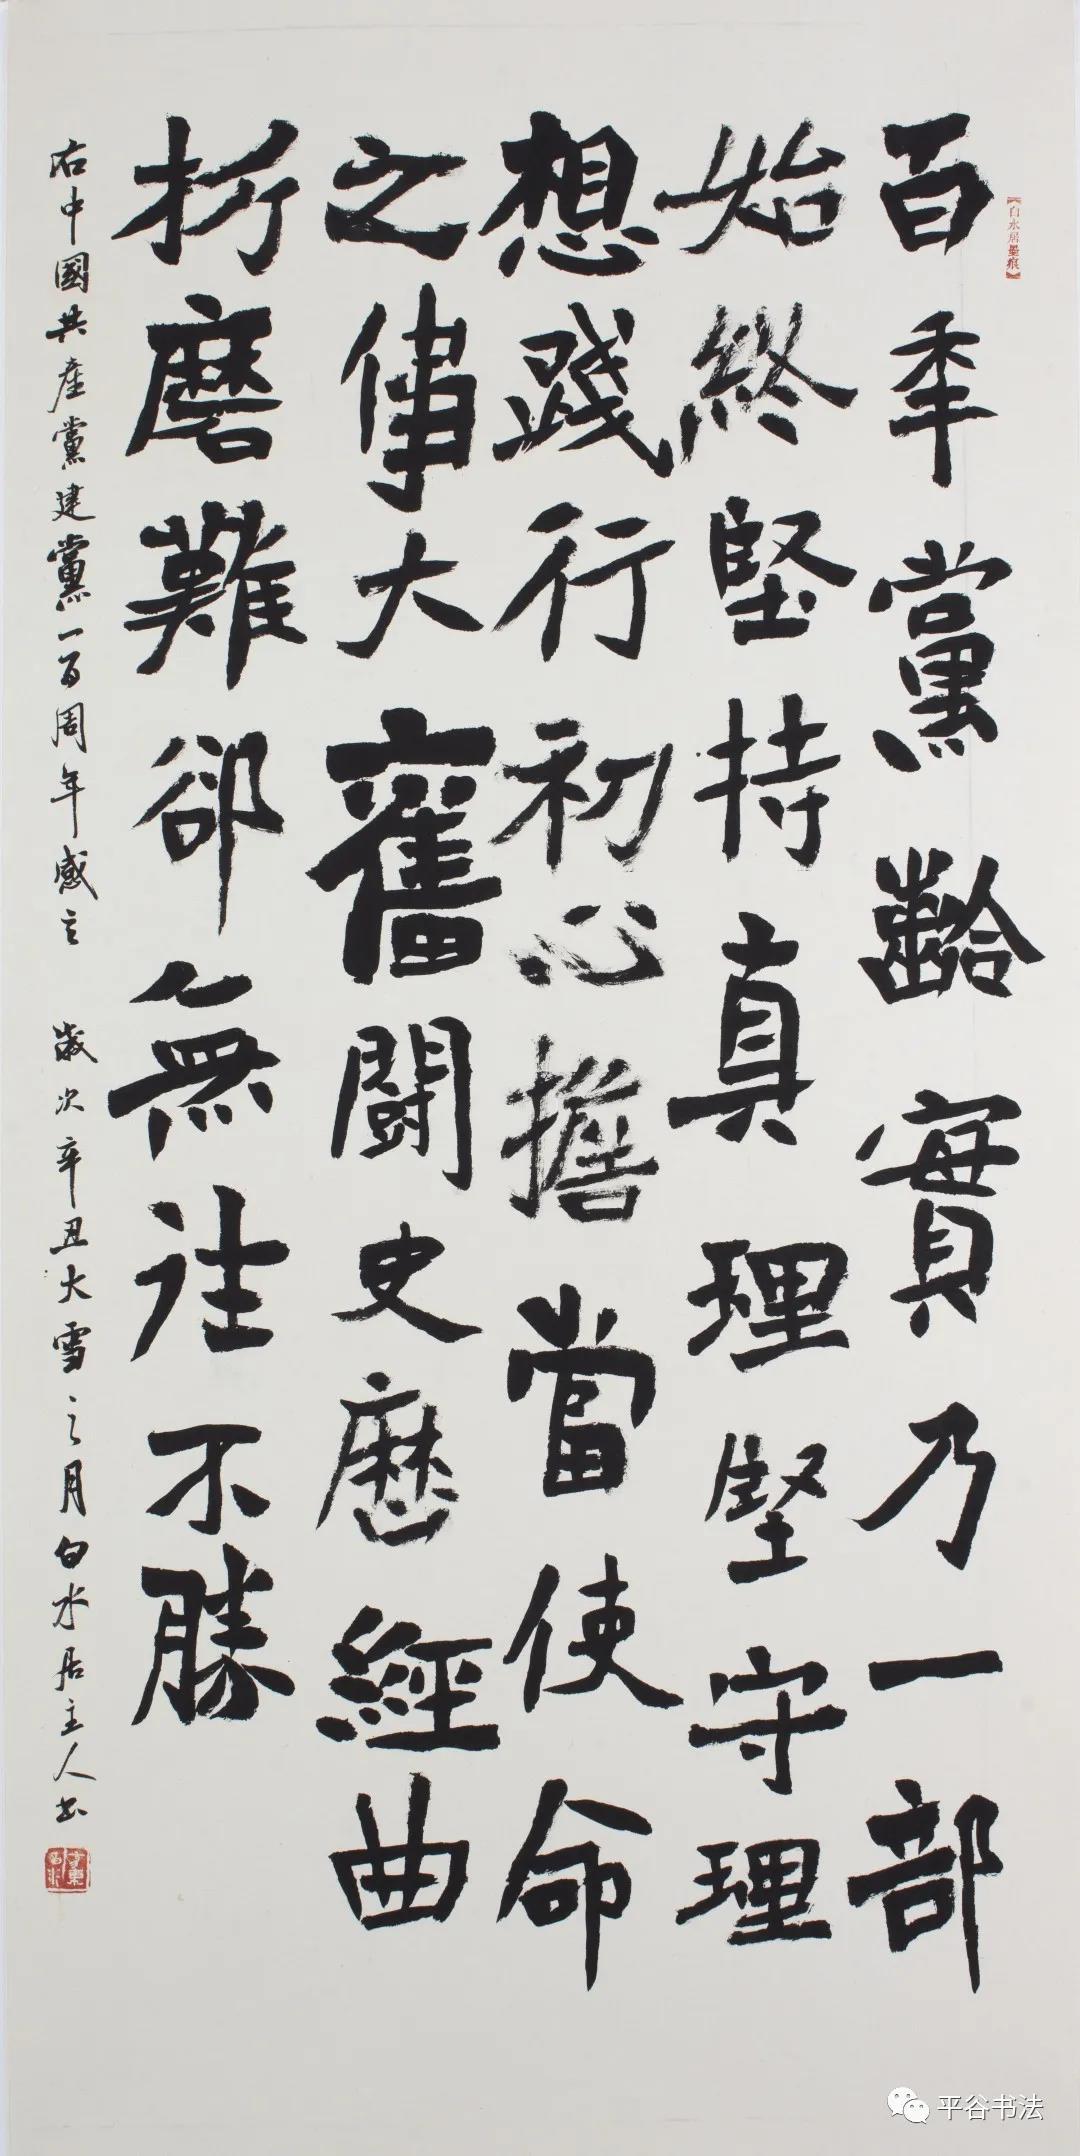 百年黨齡實乃一部
始終堅持真理堅守理
想踐行初心擔當使命
之偉大奮鬪史歷經曲
折磨難卻無往不勝
右中國共產黨建黨一百周年感言 歲次辛丑大雪之月白水居主人书
【白水居墨痕】
平谷书法